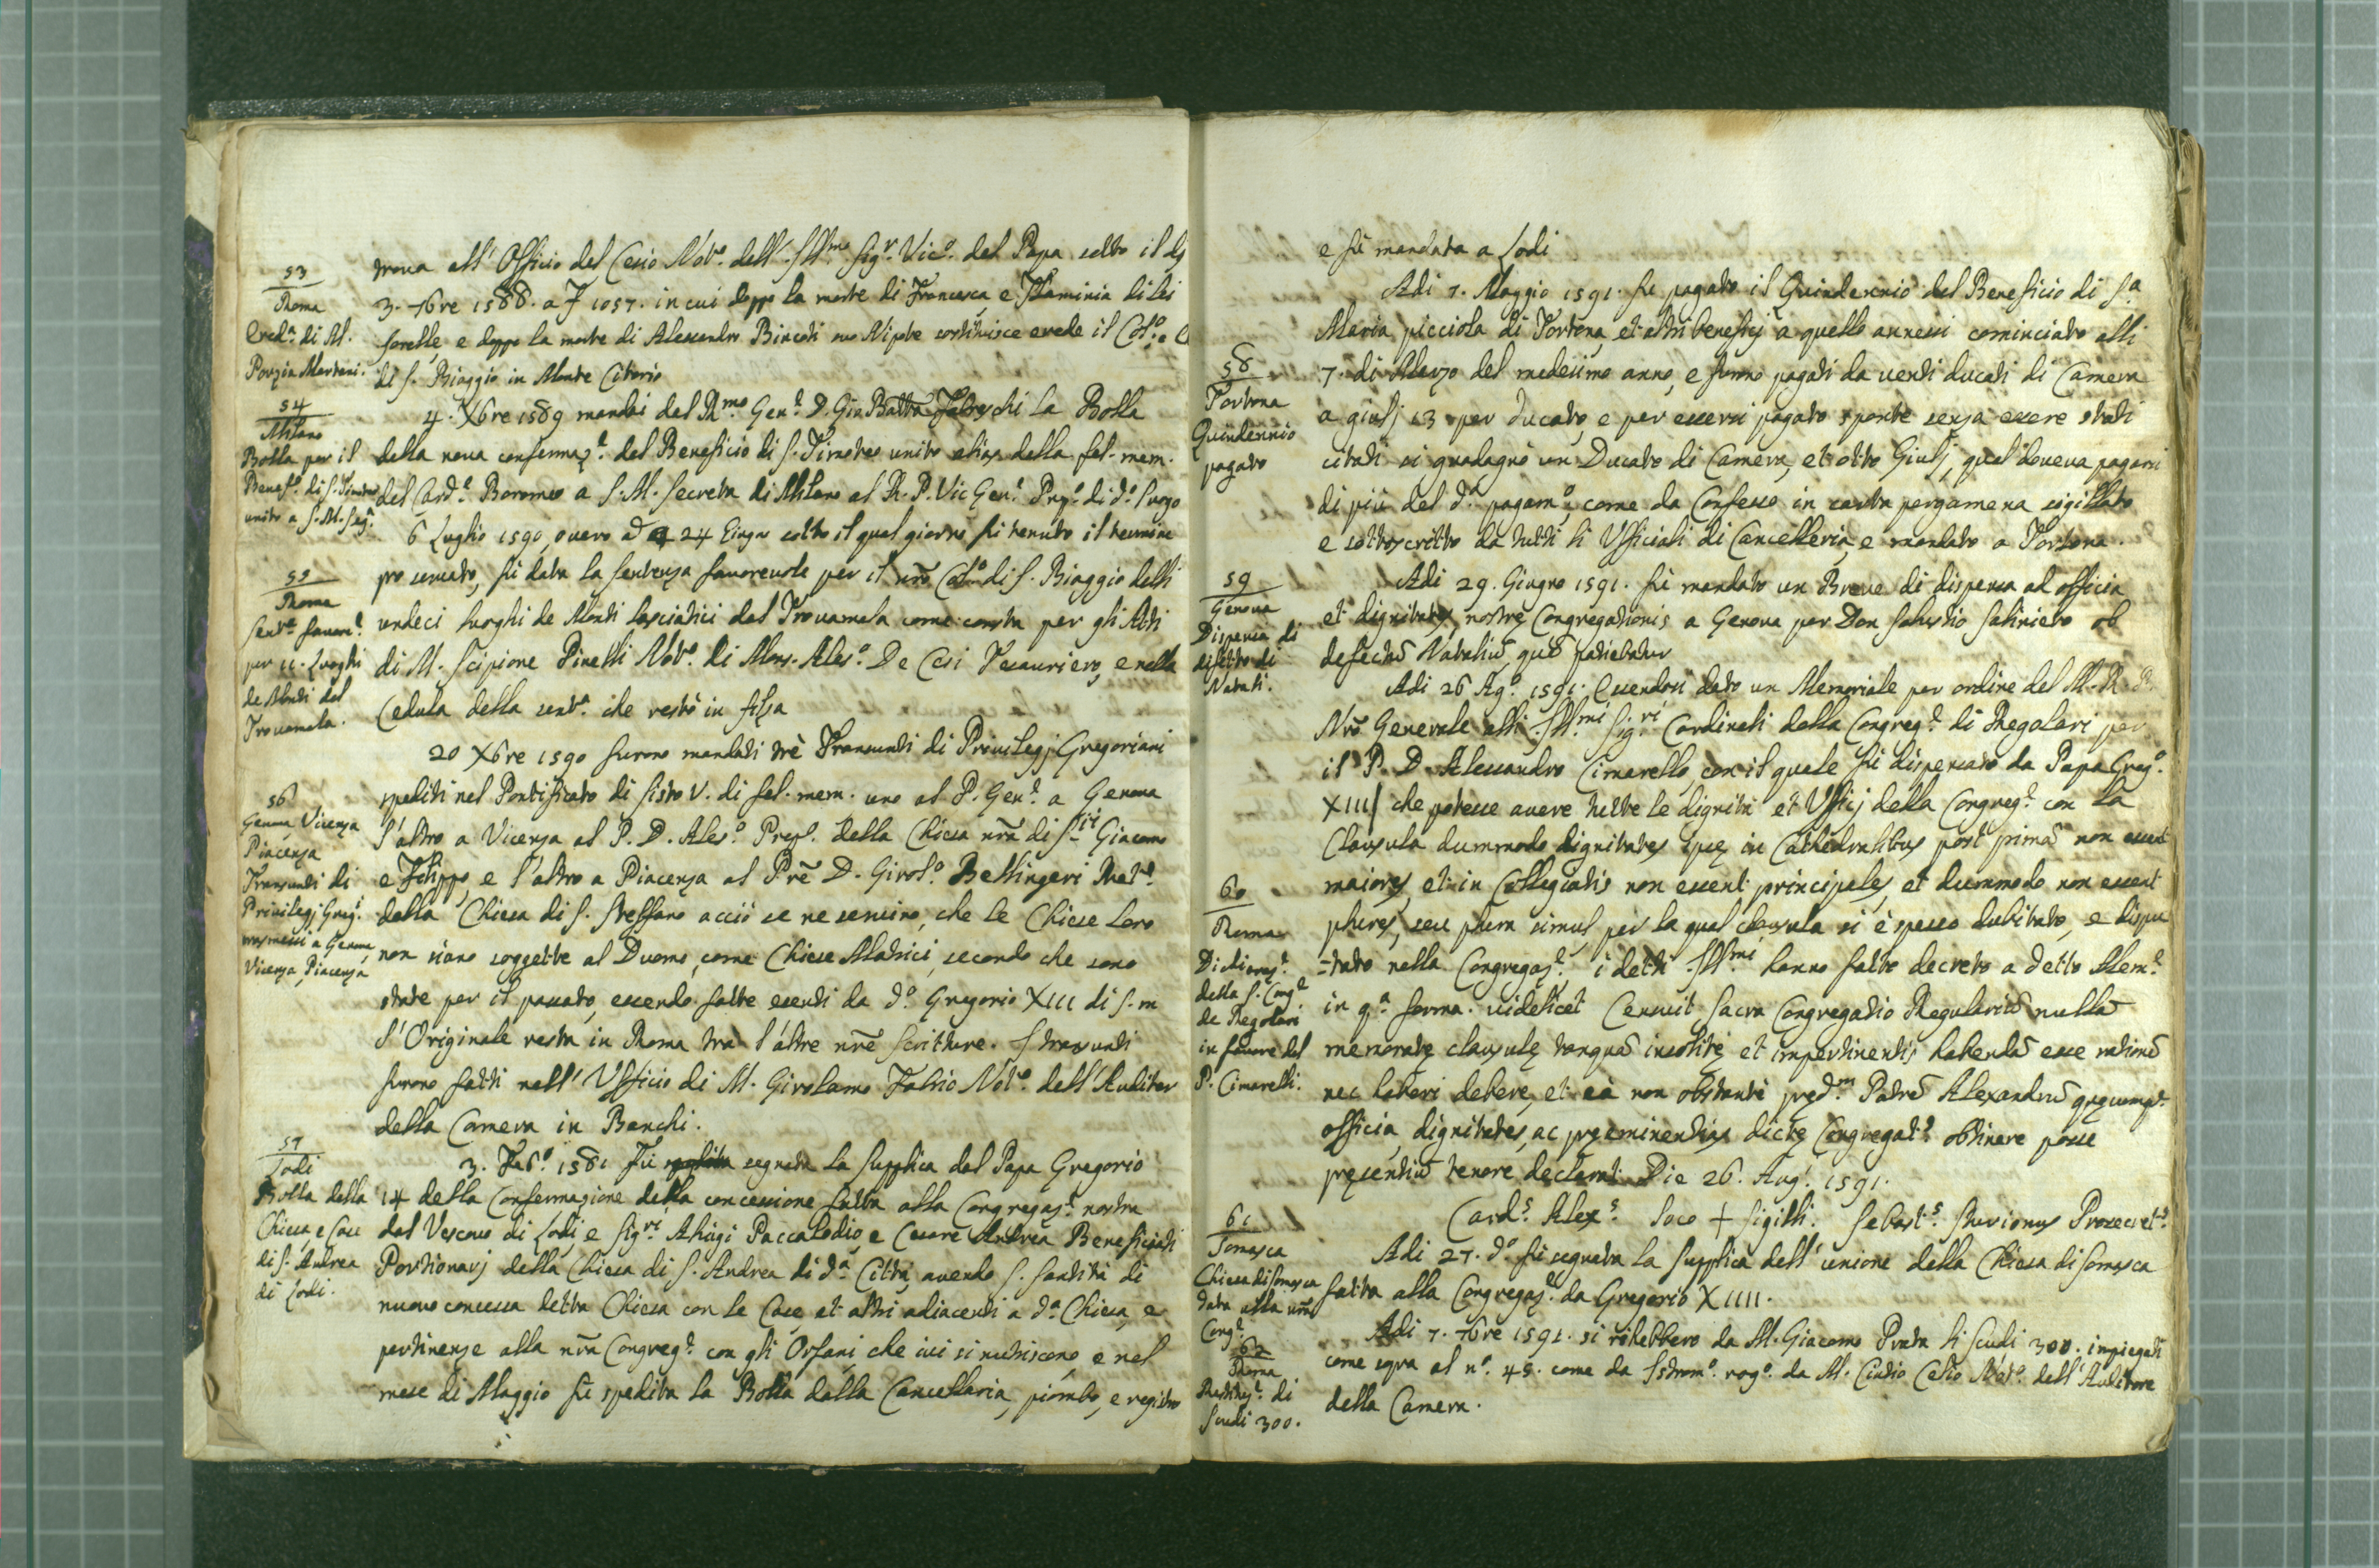 53
Roma
Ered.ª di M.
Porzia Martani.
trova all' Officio del Cesio Not.º dell' Ill.mo Sig.r Vic.º del Papa sotto il dì
3. 7bre 1588. a f 1057. in cui doppo la morte di Francesca e Flaminia di lei
sorelle, e doppo la morte di Alessandro Bincoti suo Nipote sostituisce erede il Col.º
di S. Biaggio in Monte Citorio
54
Milano
Bolla per il
Benef.º di S. Timoteo
unito a S. M. Seg.ª
4. Xbre 1589 mandai dal R.mo Gen.e D. Gio Batta Fabreschi la Bolla
della nova confermaz.e del Beneficio di S. Timoteo unito alias della fel. mem.
del Card.e Boromeo a S. M. Secreta di Milano al R. P. Vic Gen.e Prep.º di d.º luogo
55
Roma
Sent.ª favore.e
per 11. Luoghi
de Monti del
Trovamala.
6 Luglio 1590, overo a d 24 Giugno sotto il qual giorno fu tenuto il termine
pro servato, fù data la sentenza favorevole per il nrõ Col.º di S. Biaggio delli
undeci luoghi de Monti lasciatici dal Trovamala come consta per gli Atti
di M. Scipione Pinelli Not.º di Mons. Ales.º De Cesi Tesauriero, e nella
Cedula della sent.ª che restò in filza
56
Genova Vicenza
Piacenza
Transunti di
Privilegj Greg.
trasmessi a Genova,
Vicenza, Piacenza
20 Xbre 1590 furono mandati trè Transunti di Privilegj Gregoriani
spediti nel Pontificato di Sisto V. di fel. mem. uno al P. Gen.e a Genova
l'altro a Vicenza al P. D. Ales.º Prep. della Chiesa nrã di S.ti Giacomo
e Filippo, e l'altro a Piacenza al Prẽ D. Girol.º Bellingeri Rett.e
della Chiesa di S. Steffano acciò se ne servino, che le Chiese loro
non siano soggette al Duomo, come Chiese Matrici, secondo che sono
state per il passato, essendo fatte esenti da d.º Gregorio XIII di f. m
l'Originale resta in Roma tra l'altre nrẽ scritture. I transunti
furono fatti nell' Ufficio di M. Girolamo Fabrio Not.º dell' Auditor
della Camera in Banchi.
57
Lodi
Bolla della
Chiesa, e Case
di S. Andrea
di Lodi.
3. Feb.º 1581 Fù segnata la Supplica dal Papa Gregorio
14 della Confermazione della concessione fatta alla Congregaz.e nostra
dal Vescovo di Lodi, e Sig.ri Aluigi Paccalodio, e Cesare Andrea Beneficiati
Portionarj della Chiesa di S. Andrea di d.ª Città, avendo S. Santità di
nuovo concessa detta Chiesa con le Case, et altri adiacenti a d.ª Chiesa, e
pertinenze alla nrã Congreg.e con gli Orfani, che ivi si nutriscono e nel
mese di Maggio fù spedita la Bolla dalla Cancellaria, piombo, e registro
e fù mandata a Lodi
58
Tortona
Quindennio
pagato
Adi 7. Maggio 1591. fu pagato il Quindennio del Beneficio di S.ª
Maria picciola di Tortona, et altri beneficj a quello annessi cominciato alli
7. di Marzo del medesimo anno, e furno pagati da venti ducati di Camera
a giulj 13 per ducato, e per essersi pagato sponte senza essere stati
citati si guadagnò un Ducato di Camera, et otto Giulj, qual doveva pagarsi
di più del d.º pagam.º, come da Confesso in carta pergamena sigillato
e sottoscritto da tutti li Ufficiali di Cancelleria, e mandato a Tortona.
59
Genova
Dispensa di
difetto di
Natali.
Adi 29. Giugno 1591. fù mandato un Breve di dispensa ad officia
et dignitates nostrę Congregationis a Genova per Don Salustio Saliniero ob
defectũ Nataliũ, quẽ patiebatur
60
Roma
Dichiaraz.e
della S. Cong.e
de Regolari
in favore del
P. Cimarelli.
Adi 26 Ag.º 1591. Essendosi dato un Memoriale per ordine del M. R. P.
Nrõ Generale alli Ill.mi Sig.ri Cardinali della Congreg.e di Regolari per
il P. D. Alessandro Cimarello, con il quale fù dispensato da Papa Greg.º
XIII che potesse avere tutte le dignità et Ufficj della Congreg.e con la
Clausula dummodo dignitates ipsę in Cathedralibus post primã non essent
maiores, et in Collegiatis non essent principales, et dummodo non essent
plures, seu plura simul, per la qual clausula si è spesso dubitato, e dispu
=tato nella Congregaz.e i detti Ill.mi hanno fatto decreto a detto Mem.e
in q.ª forma. videlicet Censuit Sacra Congregatio Regulariũ nullã
memoratę clausulę tanquã insolitę et impertinentis habendã esse rationẽ
nec haberi debere, et eà non obstante pręd.m Patrẽ Alexandrũ quęcumq.
officia, dignitates, ac pręeminentias dictę Congregat.s obtinere posse
pręsentiũ tenore declarat. Die 26. Aug.i 1591.
Card.s Alex.s Loco + Sigilli. Sebast.s Prosecret.s
61
Somasca
Chiesa di Somasca
data alla nrã
Cong.e
Adi 27. d.º fù segnata la Supplica dell' unione della Chiesa di Somasca
fatta alla Congregaz.e da Gregorio XIIII.
62
Roma
Restituz.e di
Scudi 300.
Adi 7. 7bre 1591. si rihebbero da M. Giacomo Prata li Scudi 300. impiegati
come sopra al n.º 45. come da Istrom.º rog.º da M. Cintio Cesio Not.º dell' Auditore
della Camera.